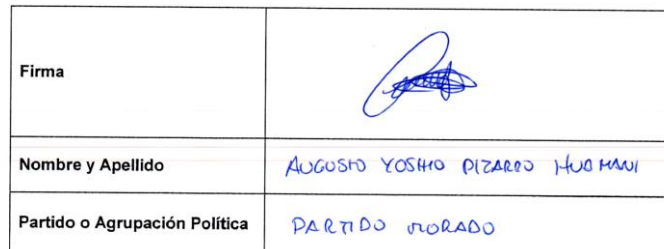 Firma
Nombre y Apellido AUGUSTO YOSHIO PIZARRO HUAMANI
Partido o Agrupación Política PARTIDO MORADO